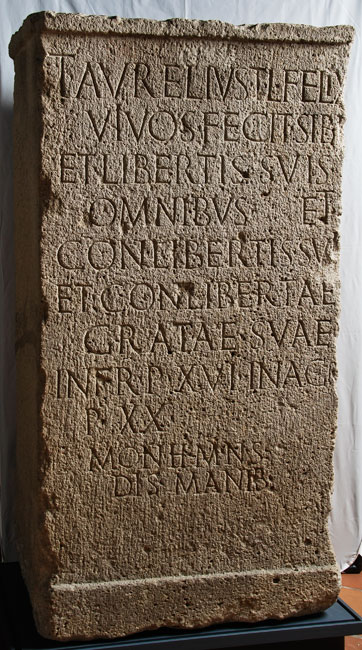 T·AVRELIVS·T·L·FELIX
VIVOS·FECIT·SIBI
ET·LIBERTIS·SVIS
OMNIBVS ET
CONLIBERTIS·SV
ET·CONLIBERTAE
GRATAE·SVAE
IN·FR·P·XVI·IN·AG
P·XX
MON·H·M·N·S
DIS MANIB